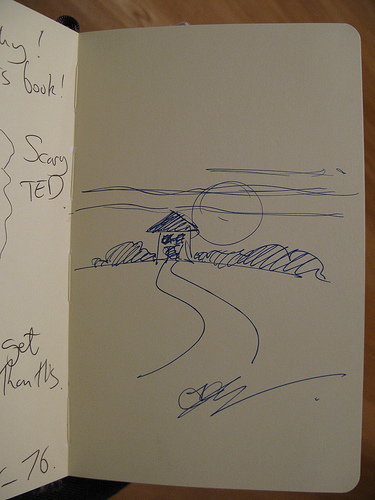 hy!
s book!
Scary
TED.
get
than this.
76.